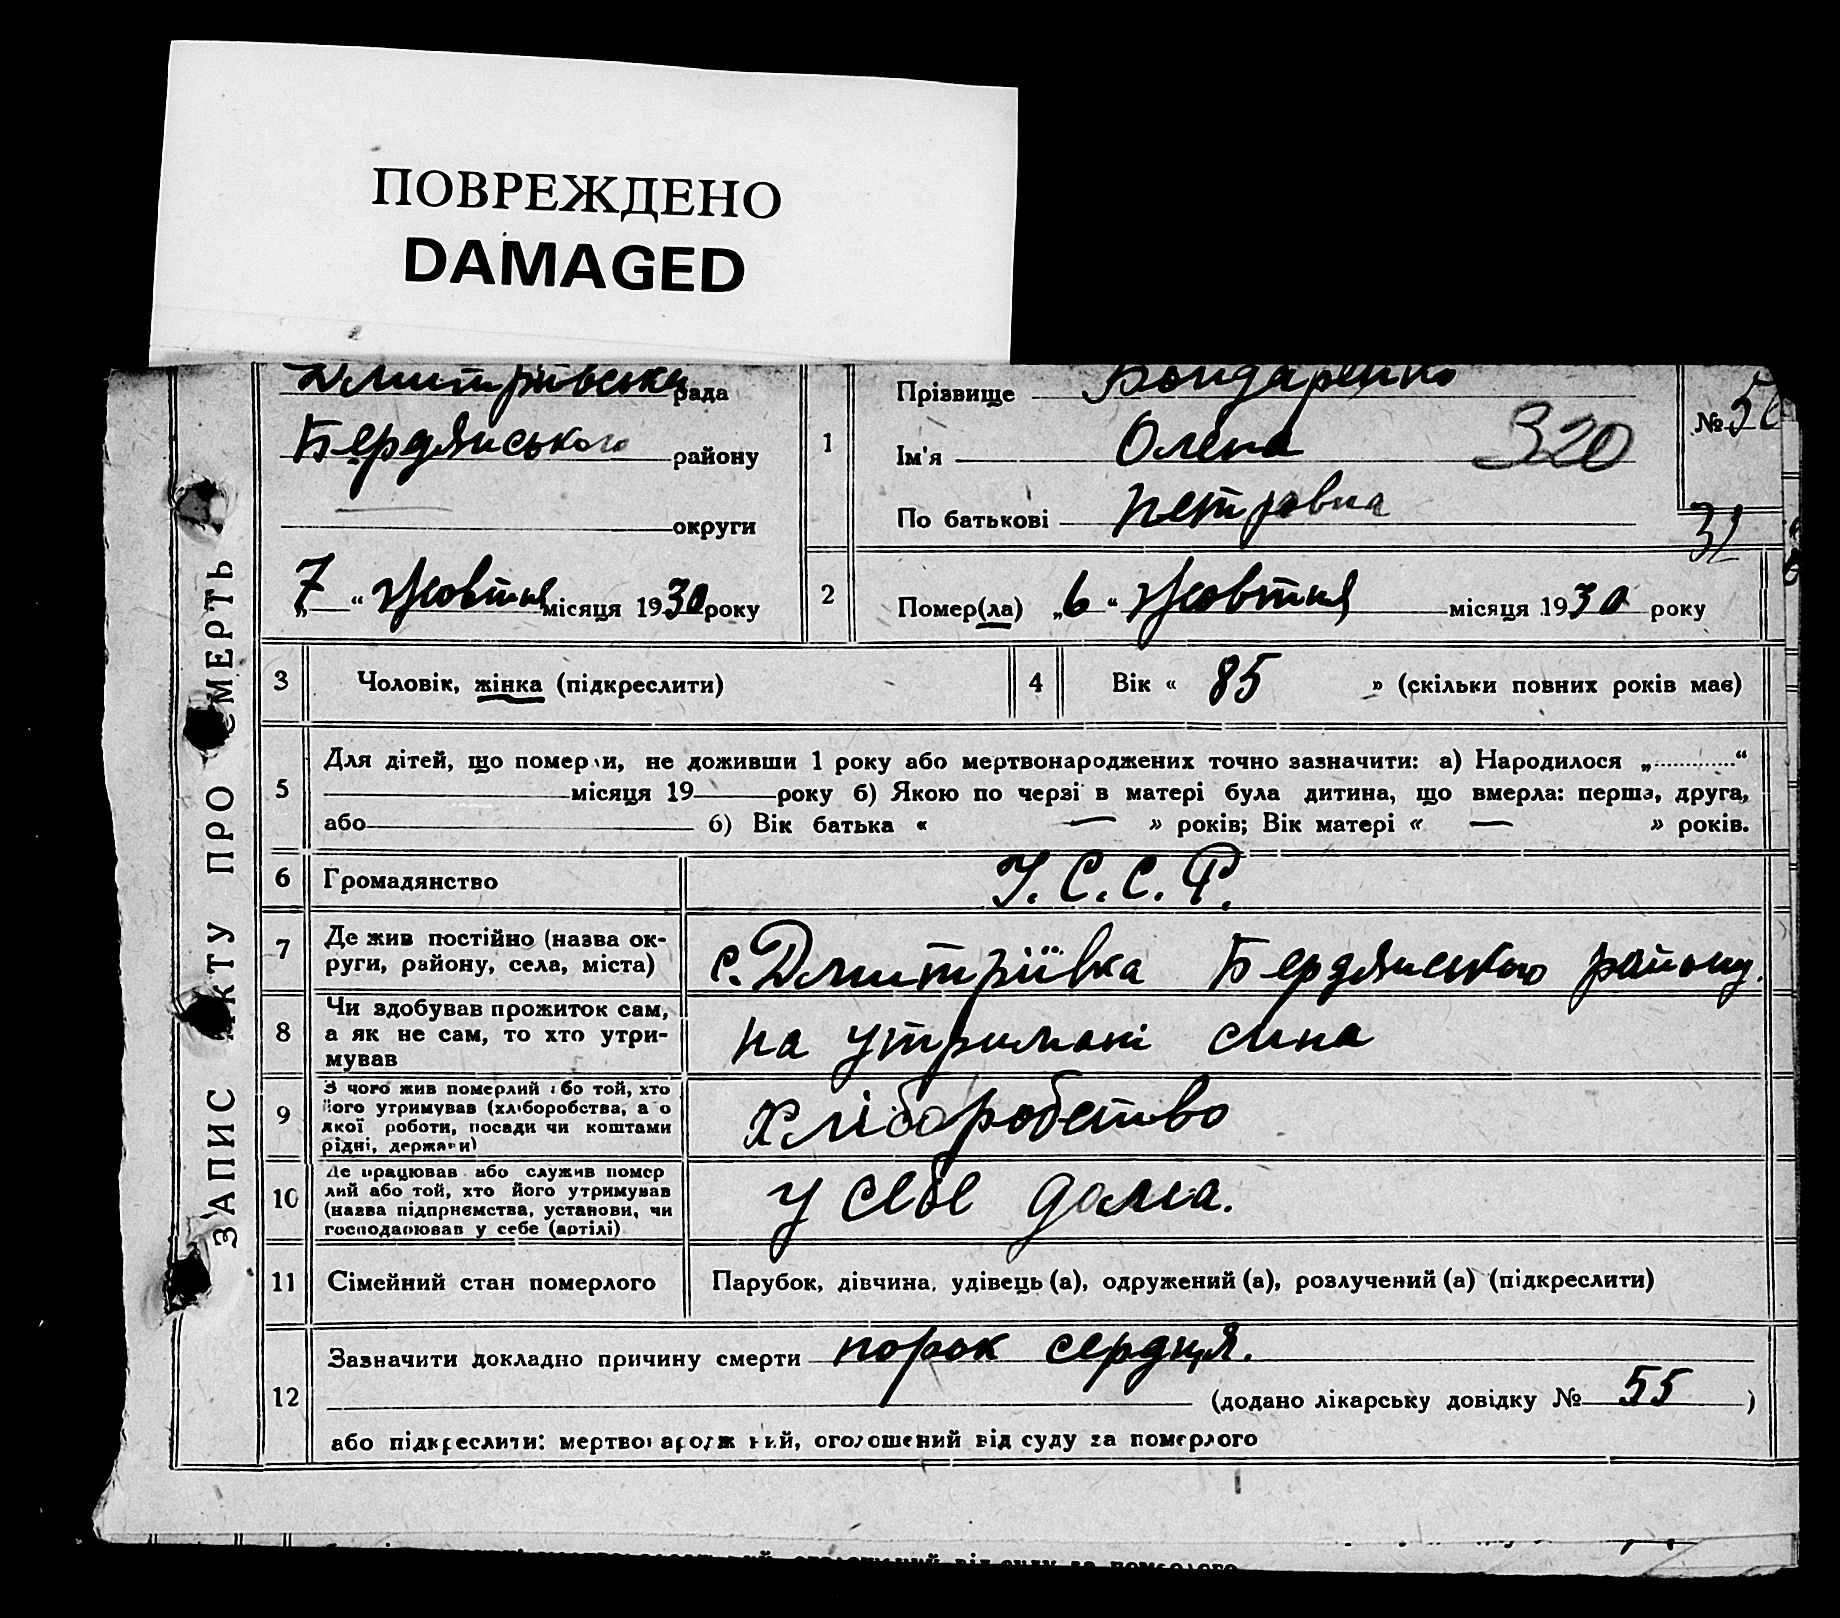 ПОВРЕЖДЕНО
DAMAGED
ЗАПИС АКТУ ПРО СМЕРТЬ
Дмитрівська рада
Бердянського району
округи
7 “ жовтня місяця 1930 року
1
Прізвище Бондаренко
Ім'я Олена 320
По батькові Петровна
№ 5
32
2
Помер(ла) „6“ жовтня місяця 1930 року
3 Чоловік, жінка (підкреслити)
4 Вік « 85 » (скільки повних років має)
5
Для дітей, що померли, не доживши 1 року або мертвонароджених точно зазначити: а) Народилося „ “
місяця 19 року б) Якою по черзі в матері була дитина, що вмерла: перша, друга,
або б) Вік батька « — » років; Вік матері « — » років.
6 Громадянство У.С.С.Р.
7 Де жив постійно (назва ок-
руги, району, села, міста)
с. Дмитріївка Бердянського району.
8 Чи здобував прожиток сам,
а як не сам, то хто утри-
мував
на утримані сина
9 З чого жив померлий або той, хто
його утримував (хліборобства, а о
якої роботи, посади чи коштами
рідні, держави)
хліборобство
10 Де працював або служив помер
лий або той, хто його утримував
(назва підприємства, установи, чи
господарював у себе (артілі)
у себе дома.
11 Сімейний стан померлого Парубок, дівчина, удівець (а), одружений (а), розлучений (а) (підкреслити)
12
Зазначити докладно причину смерти порок сердця.
(додано лікарську довідку № 55 )
або підкреслити: мертвонароджений, оголошений від суду за померлого
від суду за померлого